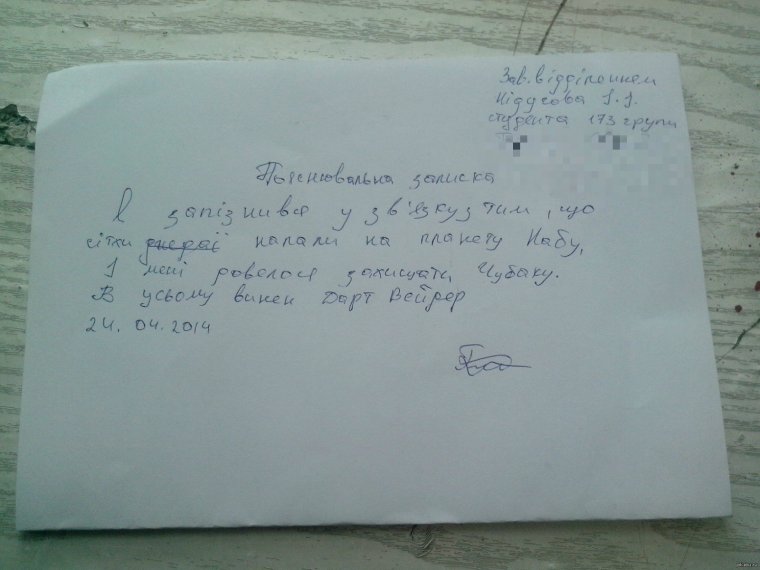 Зав. відділенням
Нідусова І.І.
студента 173 групи
Пояснювальна записка
Я запізнився у зв'язку з тим, що
сітхи напали на планету Набу,
І мені довелося захищати Чубаку.
В усьому винен Дарт Вейдер
24.04.2014